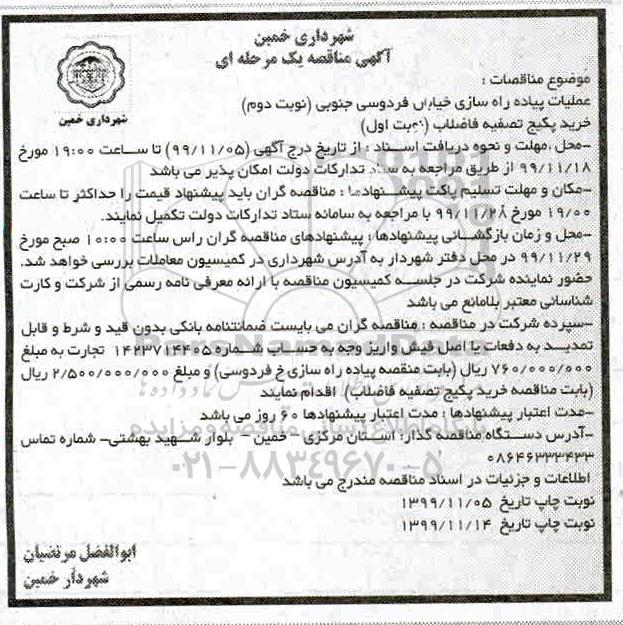 شهرداری خمین
آگهی مناقصه یک مرحله ای
شهرداری خمین
موضوع مناقصات :
عملیات پیاده راه سازی خیابان فردوسی جنوبی (نوبت دوم)
خرید پکیج تصفیه فاضلاب (نوبت اول)
-محل ،مهلت و نحوه دریافت اسناد : از تاریخ درج آگهی (۹۹/۱۱/۰۵) تا ساعت ۱۹:۰۰ مورخ
۹۹/۱۱/۱۸ از طریق مراجعه به ستاد تدارکات دولت امکان پذیر می باشد
-مکان و مهلت تسلیم پاکت پیشنهادها : مناقصه گران باید پیشنهاد قیمت را حداکثر تا ساعت
۱۹/۰۰ مورخ ۹۹/۱۱/۲۸ با مراجعه به سامانه ستاد تدارکات دولت تکمیل نمایند.
-محل و زمان بازگشائی پیشنهادها : پیشنهادهای مناقصه گران راس ساعت ۱۰:۰۰ صبح مورخ
۹۹/۱۱/۲۹ در محل دفتر شهردار به آدرس شهرداری در کمیسیون معاملات بررسی خواهد شد.
حضور نماینده شرکت در جلسه کمیسیون مناقصه با ارائه معرفی نامه رسمی از شرکت و کارت
شناسائی معتبر بلامانع می باشد
-سپرده شرکت در مناقصه : مناقصه گران می بایست ضمانتنامه بانکی بدون قید و شرط و قابل
تمدید به دفعات یا اصل فیش واریز وجه به حساب شماره ۱۴۲۳۷۱۴۴۰۵ تجارت به مبلغ
۷۶۰/۰۰۰/۰۰۰ ریال (بابت منقصه پیاده راه سازی خ فردوسی) و مبلغ ۲/۵۰۰/۰۰۰/۰۰۰ ریال
(بابت مناقصه خرید پکیج تصفیه فاضلاب). اقدام نمایند
-مدت اعتبار پیشنهادها : مدت اعتبار پیشنهادها ۶۰ روز می باشد
-آدرس دستگاه مناقصه گذار: استان مرکزی – خمین – بلوار شهید بهشتی– شماره تماس
۰۸۶۴۶۳۳۳۴۳۳
اطلاعات و جزئیات در اسناد مناقصه مندرج می باشد
نوبت چاپ تاریخ ۱۳۹۹/۱۱/۰۵
نوبت چاپ تاریخ ۱۳۹۹/۱۱/۱۴
ابوالفضل مرتضیان
شهردار خمین
ParsNamadData
پایگاه اطلاع رسانی مناقصه و مزایده
۰۲۱-۸۸۳۴۹۶۷۰-۵